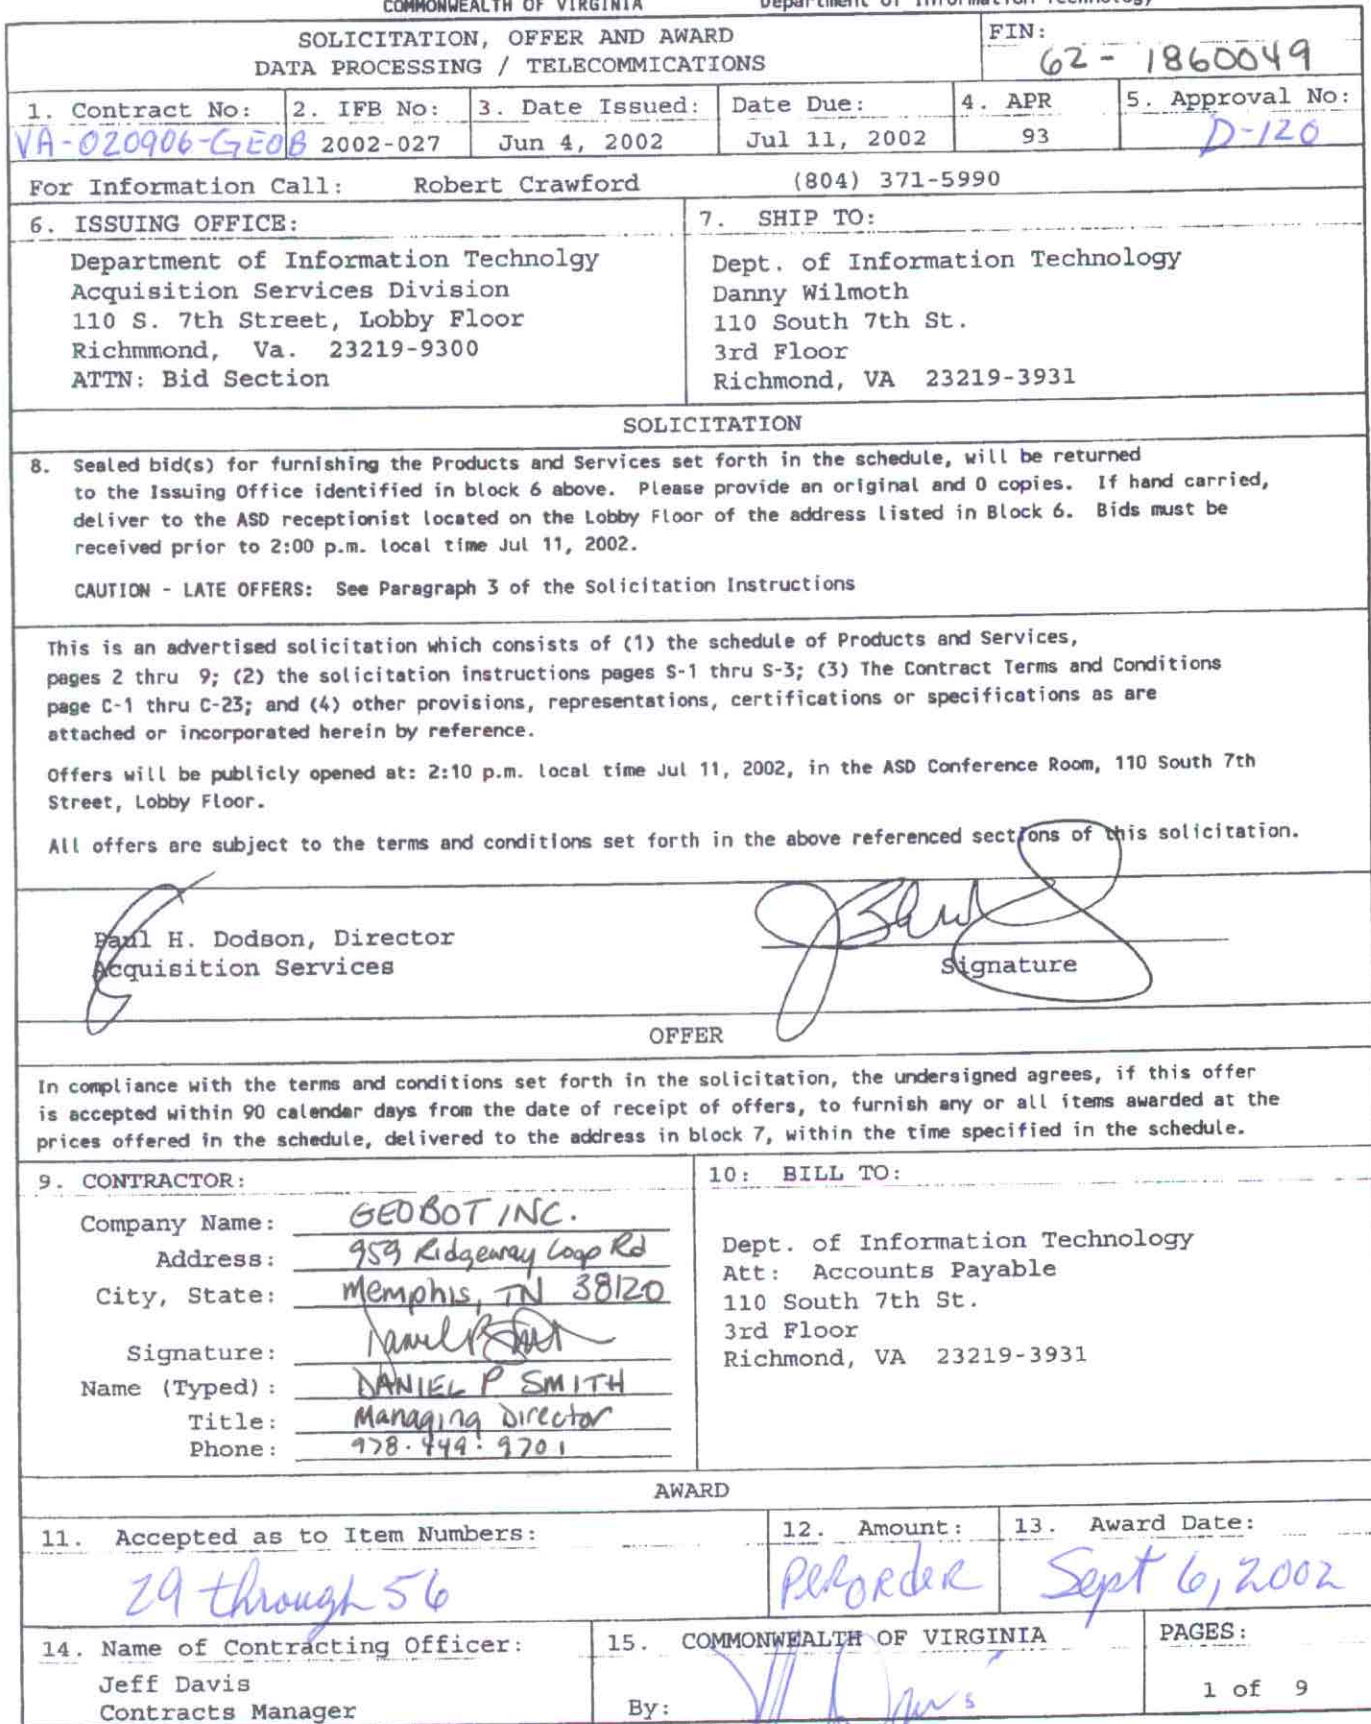 COMMONWEALTH OF VIRGINIA Department of Information Technology
SOLICITATION, OFFER AND AWARD
DATA PROCESSING / TELECOMMICATIONS
FIN:
62-1860049
1. Contract No: 2. IFB No: 3. Date Issued: Date Due: 4. APR 5. Approval No:
VA-020906-GEOB 2002-027 Jun 4, 2002 Jul 11, 2002 93 D-120
For Information Call: Robert Crawford (804) 371-5990
6. ISSUING OFFICE:
Department of Information Technolgy
Acquisition Services Division
110 S. 7th Street, Lobby Floor
Richmmond, Va. 23219-9300
ATTN: Bid Section
7. SHIP TO:
Dept. of Information Technology
Danny Wilmoth
110 South 7th St.
3rd Floor
Richmond, VA 23219-3931
SOLICITATION
8. Sealed bid(s) for furnishing the Products and Services set forth in the schedule, will be returned
to the Issuing Office identified in block 6 above. Please provide an original and 0 copies. If hand carried,
deliver to the ASD receptionist located on the Lobby Floor of the address listed in Block 6. Bids must be
received prior to 2:00 p.m. local time Jul 11, 2002.
CAUTION - LATE OFFERS: See Paragraph 3 of the Solicitation Instructions
This is an advertised solicitation which consists of (1) the schedule of Products and Services,
pages 2 thru 9; (2) the solicitation instructions pages S-1 thru S-3; (3) The Contract Terms and Conditions
page C-1 thru C-23; and (4) other provisions, representations, certifications or specifications as are
attached or incorporated herein by reference.
Offers will be publicly opened at: 2:10 p.m. local time Jul 11, 2002, in the ASD Conference Room, 110 South 7th
Street, Lobby Floor.
All offers are subject to the terms and conditions set forth in the above referenced sections of this solicitation.
Paul H. Dodson, Director
Acquisition Services
Signature
OFFER
In compliance with the terms and conditions set forth in the solicitation, the undersigned agrees, if this offer
is accepted within 90 calendar days from the date of receipt of offers, to furnish any or all items awarded at the
prices offered in the schedule, delivered to the address in block 7, within the time specified in the schedule.
9. CONTRACTOR:
Company Name: GEOBOT INC.
Address: 959 Ridgeway Loop Rd
City, State: Memphis, TN 38120
Signature:
Name (Typed): DANIEL P SMITH
Title: Managing Director
Phone: 978.449.9701
10: BILL TO:
Dept. of Information Technology
Att: Accounts Payable
110 South 7th St.
3rd Floor
Richmond, VA 23219-3931
AWARD
11. Accepted as to Item Numbers:
29 through 56
12. Amount:
PER ORDER
13. Award Date:
Sept 6, 2002
14. Name of Contracting Officer:
Jeff Davis
Contracts Manager
15. COMMONWEALTH OF VIRGINIA
By:
PAGES:
1 of 9